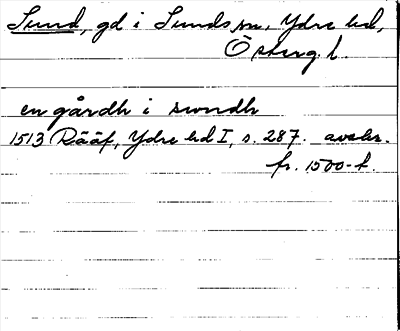 Sund, gd i Sunds sn, Ydre hd,
Österg. l.
en gårdh i swndh
1513 Rääf, Ydre hd I, s. 287. avskr.
fr. 1500-t.